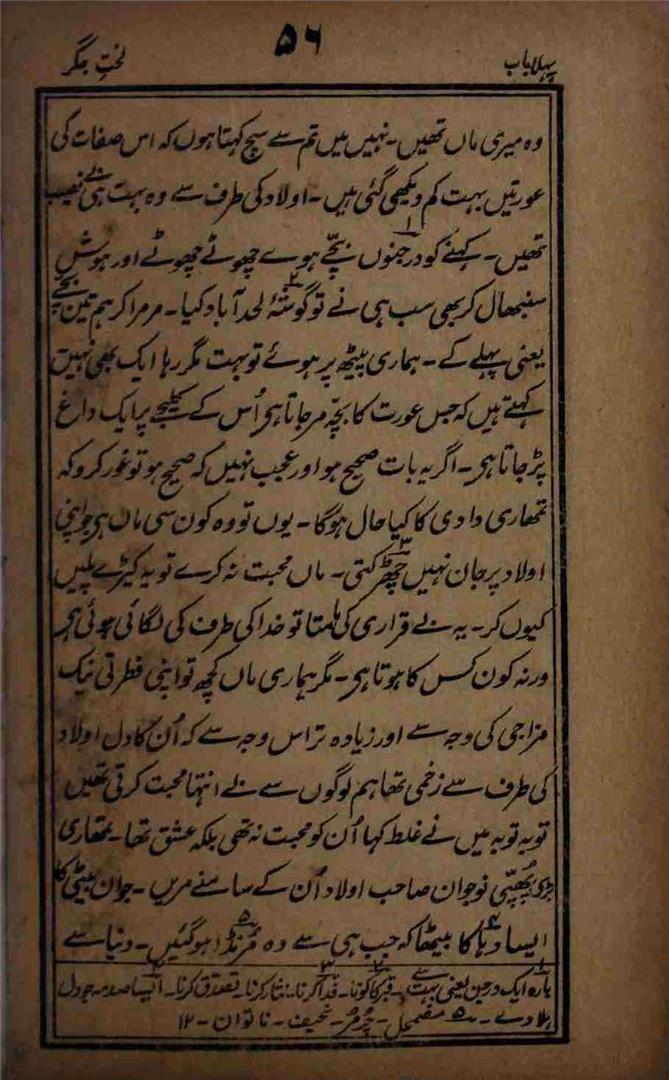 پہلا باب
۵۶
لخت جگر
وہ میری ماں تھیں۔ نہیں میں تم سے سچ کہتا ہوں کہ اس صفات کی
عورتیں بہت کم دیکھی گئی ہیں۔ اولاد کی طرف سے وہ بہت ہی بے نصیب
تھیں۔ کہنے کو درجنوں بچّے ہوے چھوٹے چھوٹے اور ہوش
سنبھال کر بھی سب ہی نے تو گوشۂ لحد آباد کیا۔ مرمرا کر ہم تین بچّے
یعنی پہلے کے۔ ہماری پیٹھ پر ہوئے تو بہت مگر رہا ایک بھی نہیں
کہتے ہیں کہ جس عورت کا بچّہ مر جاتا ہی اُس کے کلیجے پر ایک داغ
پڑ جاتا ہی۔ اگر یہ بات صحیح ہو اور عجب نہیں کہ صحیح ہو تو غور کرو کہ
تمھاری دادی کا کیا حال ہوگا۔ یوں تو وہ کون سی ماں ہی جو اپنی
اولاد پر جان نہیں چھڑکتی۔ ماں محبت نہ کرے تو یہ کیڑے پلیں
کیوں کر۔ یہ بے قراری کی مامتا تو خدا کی طرف کی لگائی ہوئی ہی
ورنہ کون کس کا ہوتا ہی۔ مگر ہماری ماں کچھ تو اپنی فطرتی نیک
مزاجی کی وجہ سے اور زیادہ تر اس وجہ سے کہ اُن کا دل اولاد
کی طرف سے زخمی تھا ہم لوگوں سے بے انتہا محبت کرتی تھیں
توبہ توبہ میں نے غلط کہا اُن کو محبت نہ تھی بلکہ عشق تھا۔ تمھاری
بڑی پھُپّی نوجوان صاحب اولاد اُن کے سامنے مریں۔ جوان بیٹی کا
ایسا دہاکا بیٹھا کہ جب ہی سے وہ مُرنڈا ہوگئیں۔ دنیا سے
بارہ ایک درجن یعنی بہت سے۔ قبر کا کونا۔ فدا کرنا۔ نثار کرنا۔ تصدق کرنا۔ ایسا صدمہ جو دل
ہلا دے۔ ۵ مضمحل۔ چُرمُر۔ نحیف۔ ناتوان۔ ۱۲